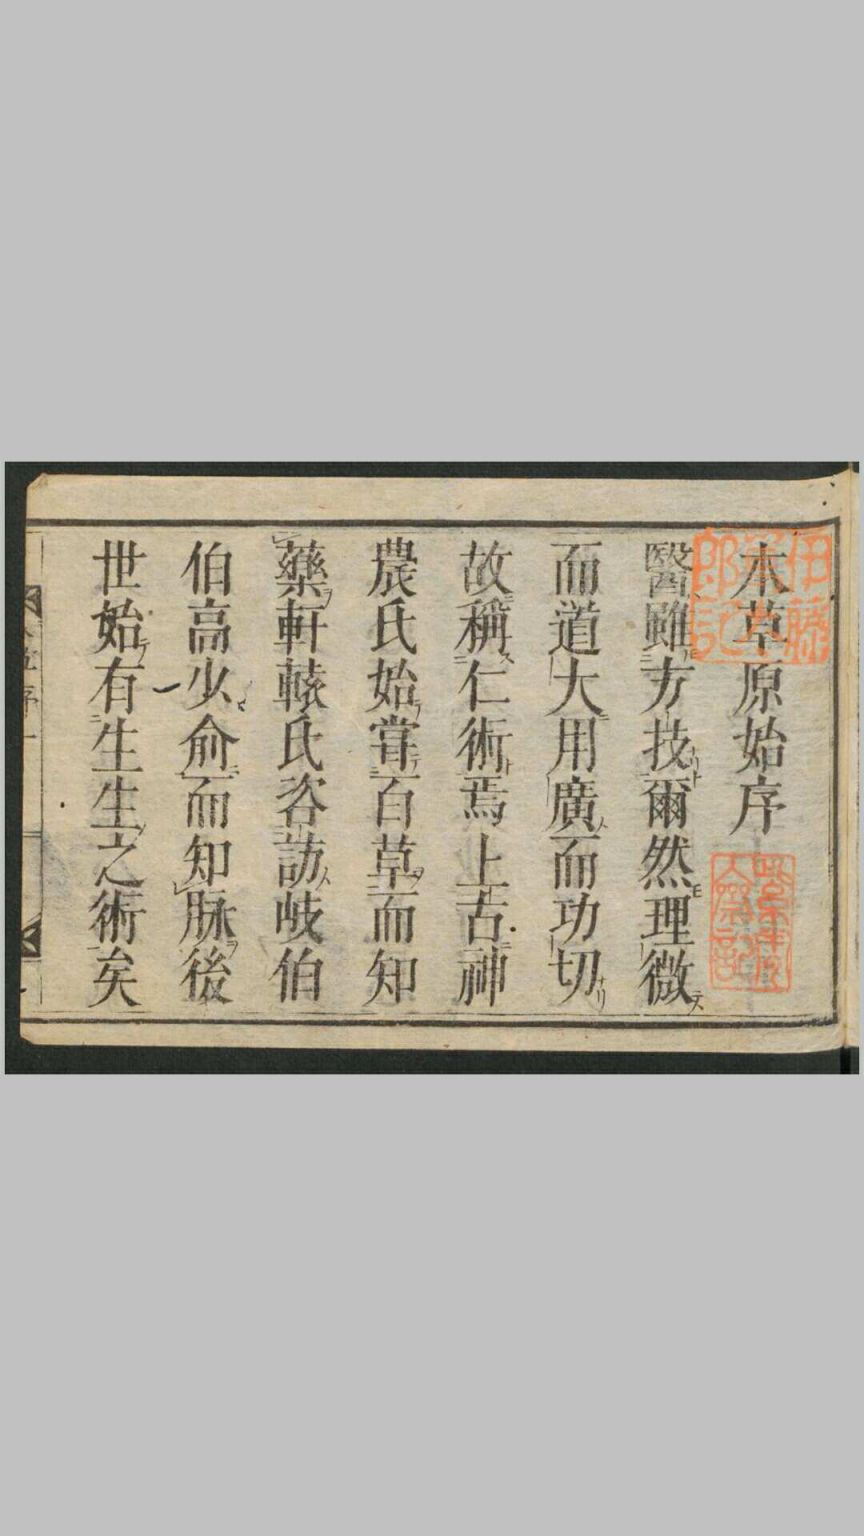 本草原始序
醫雖方技爾然理微
而道大用廣而功切
故稱仁術焉上古神
農氏始嘗百草而知
藥軒轅氏咨訪岐伯
伯高少俞而知脉後
世始有生生之術矣